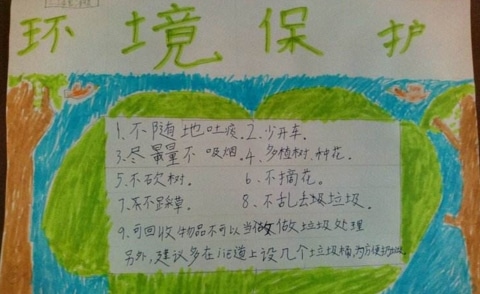 环境保护
1、不随地吐痰 2、少开车.
3、尽量不吸烟. 4、多植树、种花.
5、不砍树. 6、不摘花。
7、不踩草. 8、不乱丢圾垃圾.
9、可回收物品不可以当做做垃圾处理
另外,建议多在道上设几个垃圾桶,为方便扔垃圾